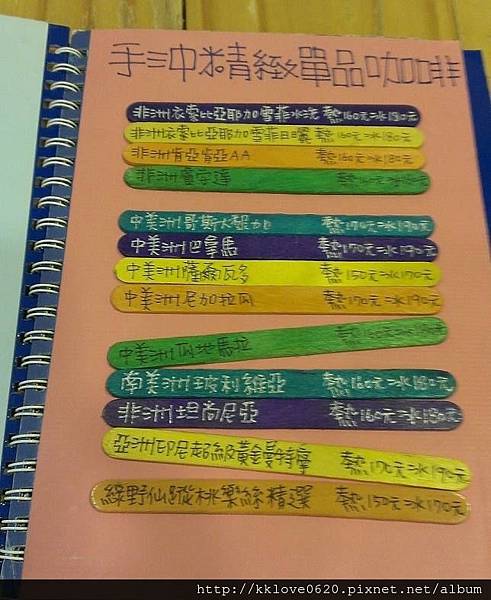 手沖精緻單品咖啡
非洲衣索比亞耶加雪菲水洗 熱160元冰180元
非洲衣索比亞耶加雪菲日曬 熱160元冰180元
非洲肯亞肯亞AA 熱160元冰180元
非洲盧安達
中美洲哥斯大黎加 熱170元冰190元
中美洲巴拿馬 熱150元冰170元
中美洲薩爾瓦多 熱150元冰170元
中美洲尼加拉瓜 熱170元冰190元
中美洲瓜地馬拉 熱160元冰180元
南美洲玻利維亞 熱160元冰180元
非洲坦尚尼亞 熱160元冰180元
亞洲印尼超級黃金曼特寧 熱170元冰190元
綠野仙蹤桃樂絲精選 熱150元冰170元
http://kklove0620.pixnet.net/album